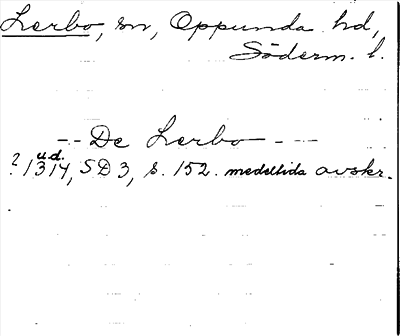 Lerbo, sn, Oppunda hd,
Söderm. l.
-- De Lerbo ---
u.d.
? 1314, SD 3, s. 152. medeltida avskr.